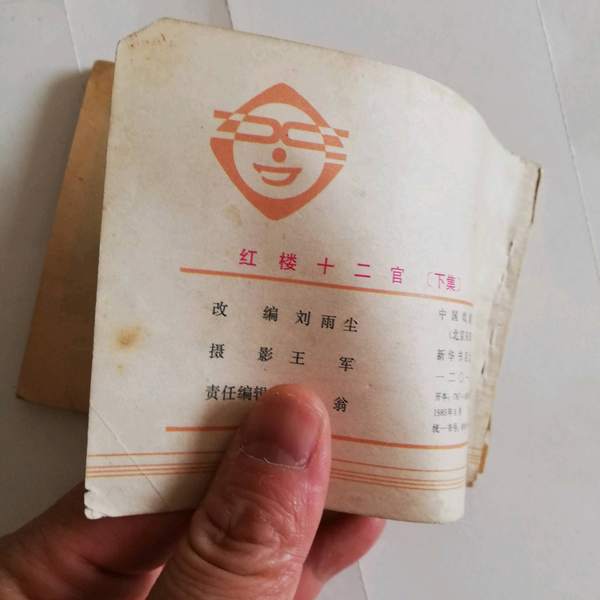 红楼十二官〔下集〕
改 编 刘雨尘
摄 影 王 军
责任编辑 翁
中国戏
（北京
新华书
一二〇一
开本：787
1985年
统一书号：